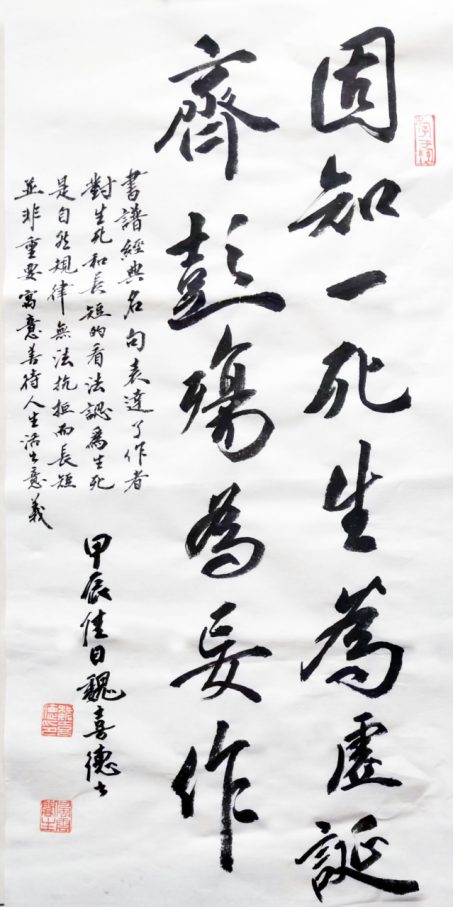 固知一死生為虛誕
齊彭殤為妄作
書譜經典名句表達了作者
對生死和長短的看法認為生死
是自然規律無法抗拒而長短
並非重要寓意善待人生活出意義
甲辰佳日魏喜德書